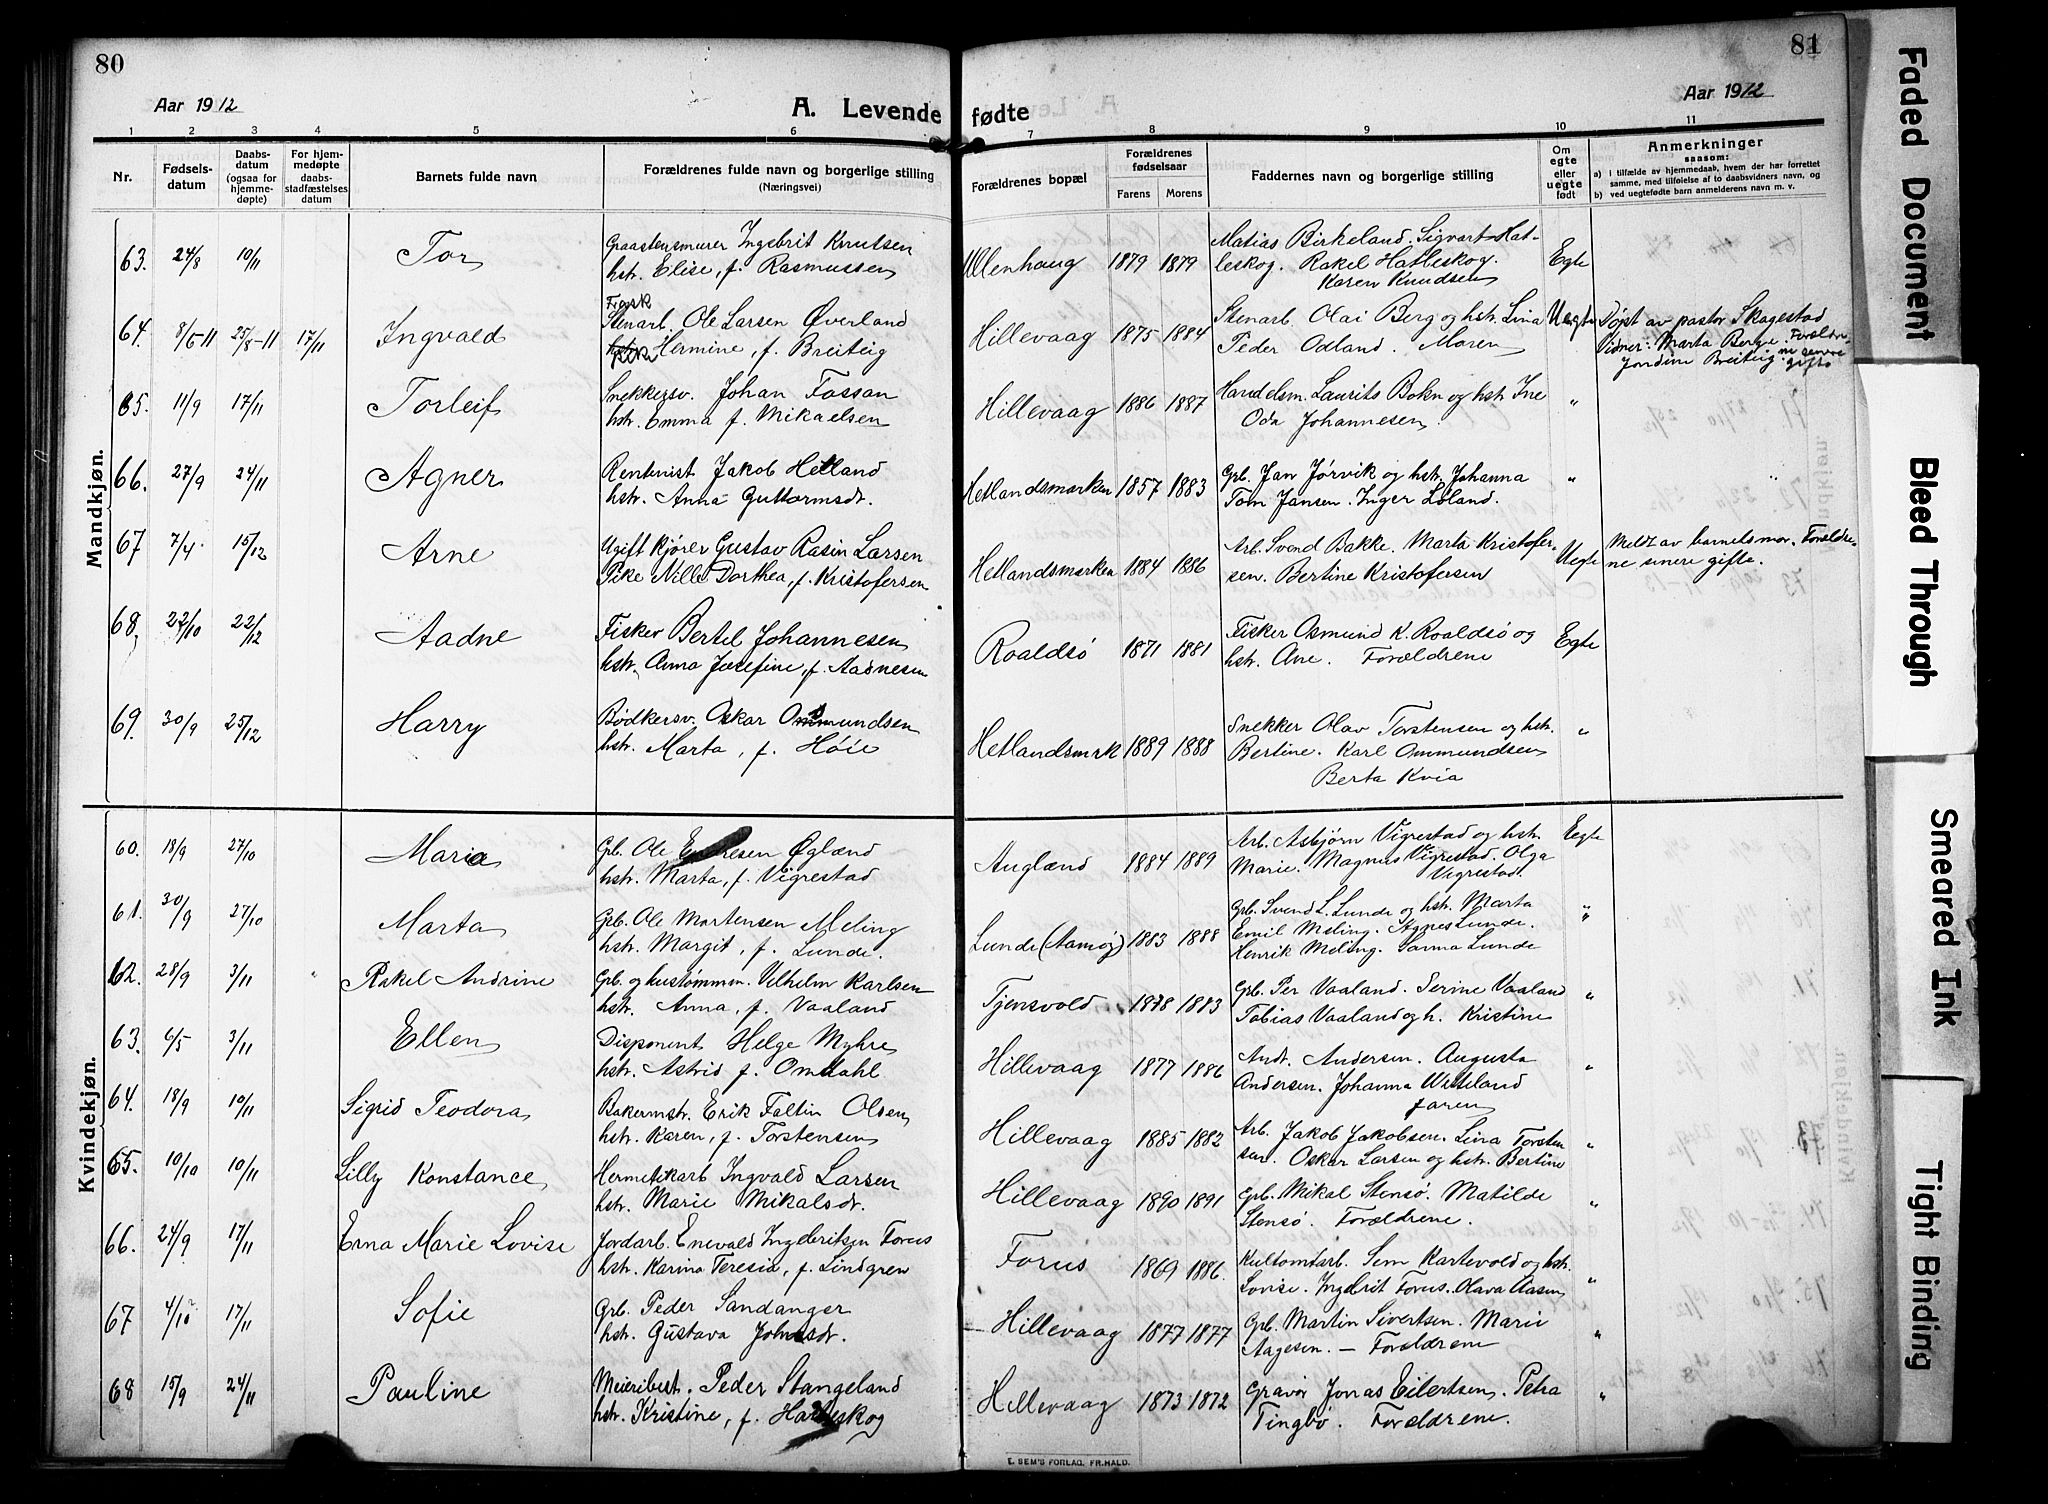 80
Aar 1912
A. Levende
1 2 3 4 5 6
Nr.
Fødsels-
datum
Daabs-
datum
(ogsaa for
hjemme-
døpte)
For hjem-
medøpte
daabs-
stadfæstelses
datum
Barnets fulde navn
Forældrenes fulde navn og borgerlige stilling
(Næringsvei)
Mandkjøn.
63. 24/8 10/11 Tor
Graastensmurer Ingebrit Knutsen
hstr. Elise, f. Rasmussen
64. 8/5-11 25/8-11 17/11 Ingvald
Stenarb. Ole Larsen Øverland
Hermine, f. Breiteig
65. 11/9 17/11 Torleif
Snekkersv. Johan Fossan
hstr. Emma f. Mikaelsen
66. 27/9 24/11 Agner
Rentenist Jakob Hetland
hstr. Anna Guttormsdt.
67 7/4 15/12 Arne
Ugift kjører Gustav Rasin Larsen
Pike Nille Dorthea, f. Kristofersen
68, 22/10 22/12 Aadne
Fisker Bertel Johannesen
hstr. Anna Josefine, f. Aadnesen
69. 30/9 25/12 Harry
Bødkersv. Oskar Ommundsen
hstr. Marta, f. Høie
Kvindekjøn.
60. 18/9 27/10 Maria
Grb. Ole Øgland
hstr. Marta, f. Vigrestad
61. 30/9 27/10 Marta
Grb. Ole Mortensen Meling
hstr. Margit, f. Lunde.
62. 28/9 3/11 " Rakel Andrine
Grb. og hustømmm. Vilhelm Karlsen
hstr. Anna, f. Vaaland
63. 6/5 3/11 Ellen
Disponent Helge Myhre
hstr. Astrid f. Omdahl
64. 18/9 10/11 Sigrid Teodora
Bakermstr. Erik Faltin Olsen
hstr. Karen, f. Torstensen
65. 10/10 10/11 Lilly Konstance
Hermetikarb Ingvald Larsen
hstr. Marie Mikalsdt.
66. 24/9 17/11 Erna Marie Lovise
Jordarb. Enevald Ingebritsen Forus
hstr. Karina Teresia, f. Lindgren
67 4/10 17/11 Sofie
Grb. Peder Sandanger
hstr. Gustava Johnsdt.
68 15/9 24/11 Pauline
Meieribest. Peder Stangeland
hstr. Kristine, f. Hatleskog
81
Aar 1912
fødte
7 8 9 10 11
Forældrenes bopæl
Forældrenes
fødselsaar
Farens Morens
Faddernes navn og borgerlige stilling
Om
egte
eller
uegte
født
Anmerkninger
saasom:
a) i tilfælde av hjemmedaab, hvem der har forrettet
samme, med tilføielse av to daabsvidners navn, og
b) ved uegtefødte barn anmelderens navn m. v.
Ullenhaug 1879 1879
Matias Birkeland. Sigvart Hat-
leskog. Rakel Hatleskog.
Karen Knudsen
Egte
Hillevaag 1875 1884
Stenarb. Olai Berg og hstr. Lina
Peder Odland. Maren
Uegte
Døpt av pastor Skagestad
Vidner: Marta Berge. Forældre-
Jordine Breiteig ne senere
gifte
Hillevaag 1886 1887
Handelsm. Laurits Bokn og hstr. Ine
Oda Johannesen.
"
Hetlandsmarken 1857 1883
Grb. Jan Jørvik og hstr. Johanna
Tom Jansen. Inger Loland.
"
Hetlandsmarken 1884 1886
Arb. Svend Bakke. Marta Kristofer-
sen. Bertine Kristofersen
Uegte
Meldt av barnets mor. Forældre-
ne senere gifte.
Roaldsø 1871 1881
Fisker Osmund K. Roaldsø og
hstr. Ane. Forældrene
Egte
Hetlandsmrk 1889 1888
Snekker Olav Torstensen og hstr.
Bertine. Karl Ommundsen
Berta Kvia
"
Augland 1884 1889
Arb. Asbjørn Vigrestad og hstr.
Marie. Magnus Vigrestad. Olga
Vigrestad.
Egte
Lunde (Aamøy) 1883 1888
Grb. Svend L. Lunde og hstr. Marta
Emil Meling. Agnes Lunde.
Henrik Meling. Sanna Lunde
"
Tjensvold 1878 1883
Grb. Per Vaaland. Serine Vaaland
Tobias Vaaland og h. Kristine
"
Hillevaag 1877 1886
Andr. Andersen. Augusta
Andersen. Johanna
Faren
"
Hillevaag 1885 1882
Arb. Jakob Jakobsen. Lina Torsten
sen. Oskar Larsen og hstr. Bertine
"
Hillevaag 1890 1891
Grb. Mikal Stensø. Matilde
Stensø. Forældrene.
"
Forus 1869 1886.
Kultomtarb. Sem Kartevold og hstr.
Lovise. Ingebrit Forus. Olava Aasen
"
Hillevaag 1877 1877
Grb. Martin Sivertsen. Marie
Aagesen. — Forældrene
"
Hillevaag 1873 1872
Gravør Jonas Eilertsen. Petra
Tingbø. Forældrene.
"
E. SEM'S FORLAG, FR.HALD.
Faded Document
Bleed Through
Smeared Ink
Tight Binding